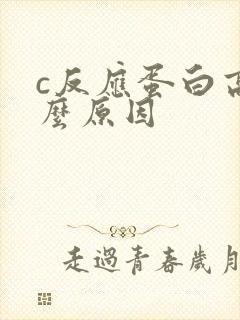 c反應蛋白高
麼原因
走過青春歲月